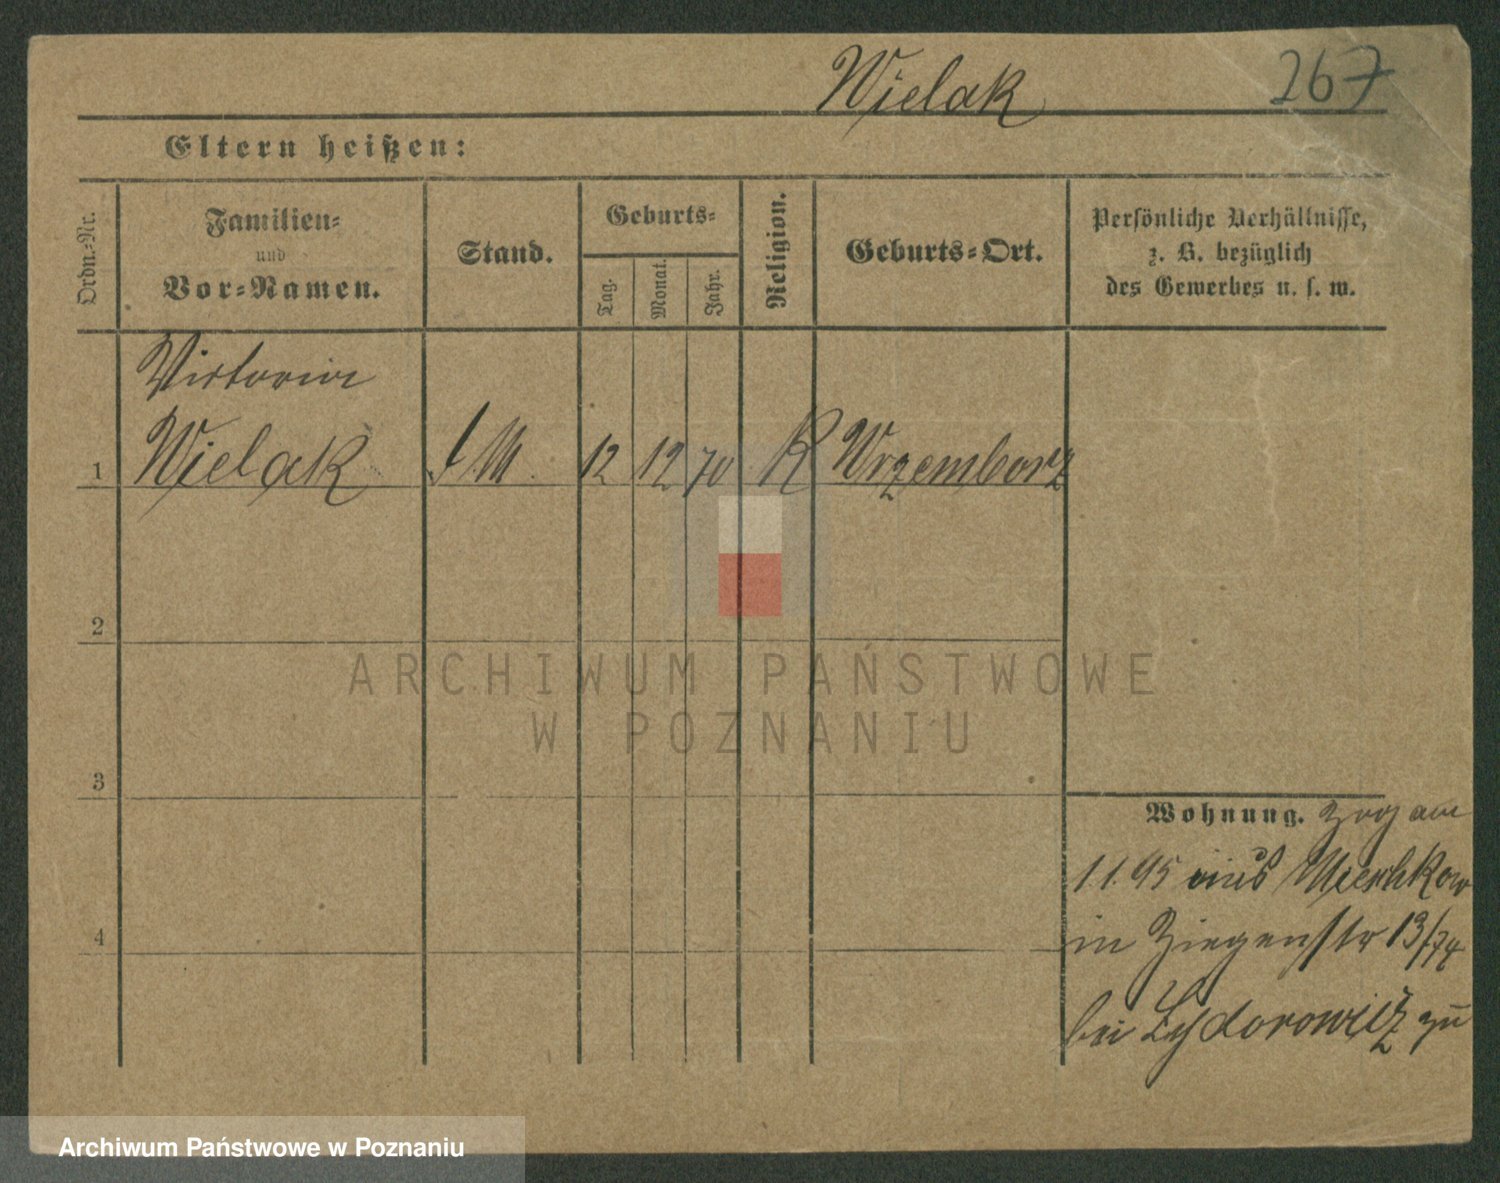 Wielak 267
Eltern heißen:
Ordn.-Nr.
Familien-
und
Vor-Namen.
Stand.
Geburts-
Tag.
Monat.
Jahr.
Religion.
Geburts-Ort.
Persönliche Verhältnisse,
z. B. bezüglich
des Gewerbes u. s. w.
Victoria
1 Wielak M 12 12 70 K Wrzemborz
2
3
4
Wohnung. Zog am
1 1. 95 aus
in Ziegenstr 13/14
bei zu
ARCHIWUM PAŃSTWOWE
W POZNANIU
Archiwum Państwowe w Poznaniu